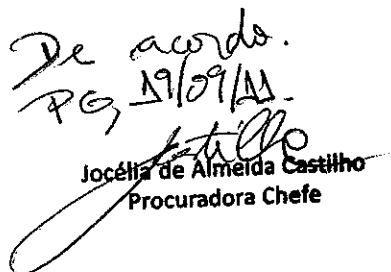 De acordo.
PG, 19/09/11.
Jocélia de Almeida Castilho
Procuradora Chefe